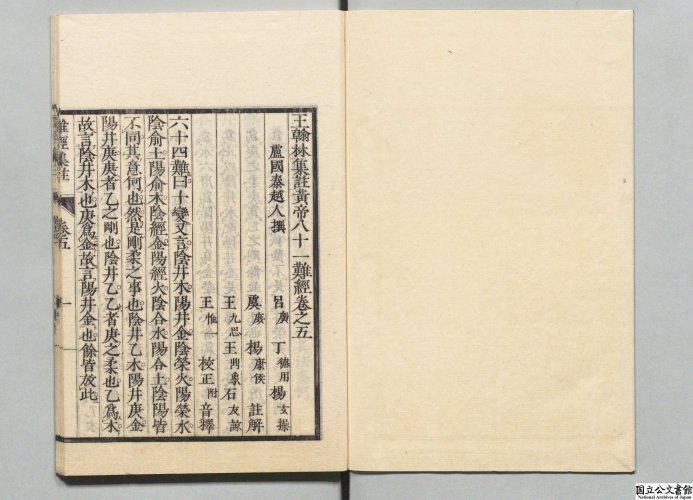 王翰林集註黄帝八十一難經卷之五
盧國秦越人撰
呂廣 丁德用 楊玄操
虞庶 楊康侯 註解
王九思 王鼎象 石友諒
王惟一 校正附音釋
六十四難曰十變又言陰井木陽井金陰滎火陽滎水
陰俞土陽俞木陰經金陽經火陰合水陽合土陰陽皆
不同其意何也然是剛柔之事也陰井乙木陽井庚金
陽井庚庚者乙之剛也陰井乙乙者庚之柔也乙爲木
故言陰井木也庚爲金故言陽井金也餘皆放此
難經集註 卷五 一
国立公文書館
National Archives of Japan